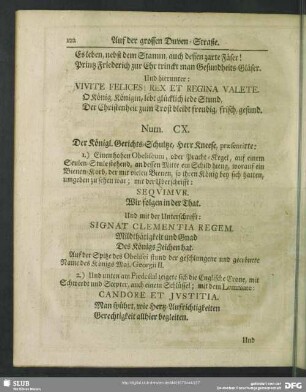 122 Auf der grossen Duven-Straße.
Es leben, nebst dem Stamm, auch dessen zarte Fäser!
Printz Friederich zur Ehr trinckt man Gesundheits-Gläser.
Und hierunter:
VIVITE FELICES; REX ET REGINA VALETE.
O König, Königin, lebt glücklich jede Stund,
Der Christenheit zum Trost bleibt freudig, frisch, gesund.
Num. CX.
Der Königl. Gerichts-Schultze, Herr Kneese, præsentirte:
1.) Einen hohen Obeliscum, oder Pracht-Kegel, auf einem
Seulen-Stule stehend, an dessen Mitte ein Schild hieng, worauf ein
Bienen-Korb, der mit vielen Bienen, so ihren König bey sich hatten,
umgeben zu sehen war; mit der Uberschrift:
SEQVIMVR.
Wir folgen in der That.
Und mit der Unterschrift:
SIGNAT CLEMENTIA REGEM.
Mildthätigkeit und Gnad
Des Königs Zeichen hat.
Auf der Spitze des Obelisci stund der geschlungene und gecrönte
Name des Königs Maj. Georgii II.
2.) Und unten am Piedestal zeigete sich die Englische Crone, mit
Schwerdt und Scepter, auch einem Schlüssel; mit dem Lemmate:
CANDORE ET JVSTITIA.
Man spührt, wie Hertz-Aufrichtigkeiten
Gerechtigkeit allhier begleiten.
Und
SLUB
Wir führen Wissen.
http://digital.slub-dresden.de/
gefördert von der
DFG